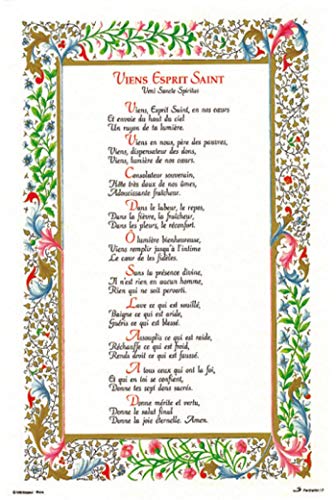 VIENS ESPRIT SAINT
Veni Sancte Spiritus
Viens, Esprit Saint, en nos cœurs
Et envoie du haut du ciel
Un rayon de ta lumière.
Viens en nous, père des pauvres,
Viens, dispensateur des dons,
Viens, lumière de nos cœurs.
Consolateur souverain,
Hôte très doux de nos âmes,
Adoucissante fraîcheur.
Dans le labeur, le repos,
Dans la fièvre, la fraîcheur,
Dans les pleurs, le réconfort.
O lumière bienheureuse,
Viens remplir jusqu'à l'intime
Le cœur de tes fidèles.
Sans ta présence divine,
Il n'est rien en aucun homme,
Rien qui ne soit perverti.
Lave ce qui est souillé,
Baigne ce qui est aride,
Guéris ce qui est blessé.
Assouplis ce qui est raide,
Réchauffe ce qui est froid,
Rends droit ce qui est faussé.
A tous ceux qui ont la foi,
Et qui en toi se confient,
Donne tes sept dons sacrés.
Donne mérite et vertu,
Donne le salut final
Donne la joie éternelle. Amen.